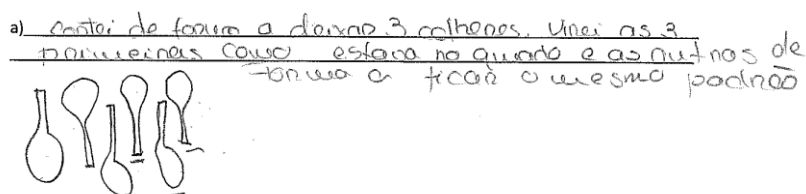 a) contei de forma a deixar 3 colheres. Virei as 3
primeiras como estava no quadro e as outras de
forma a ficar o mesmo padrão